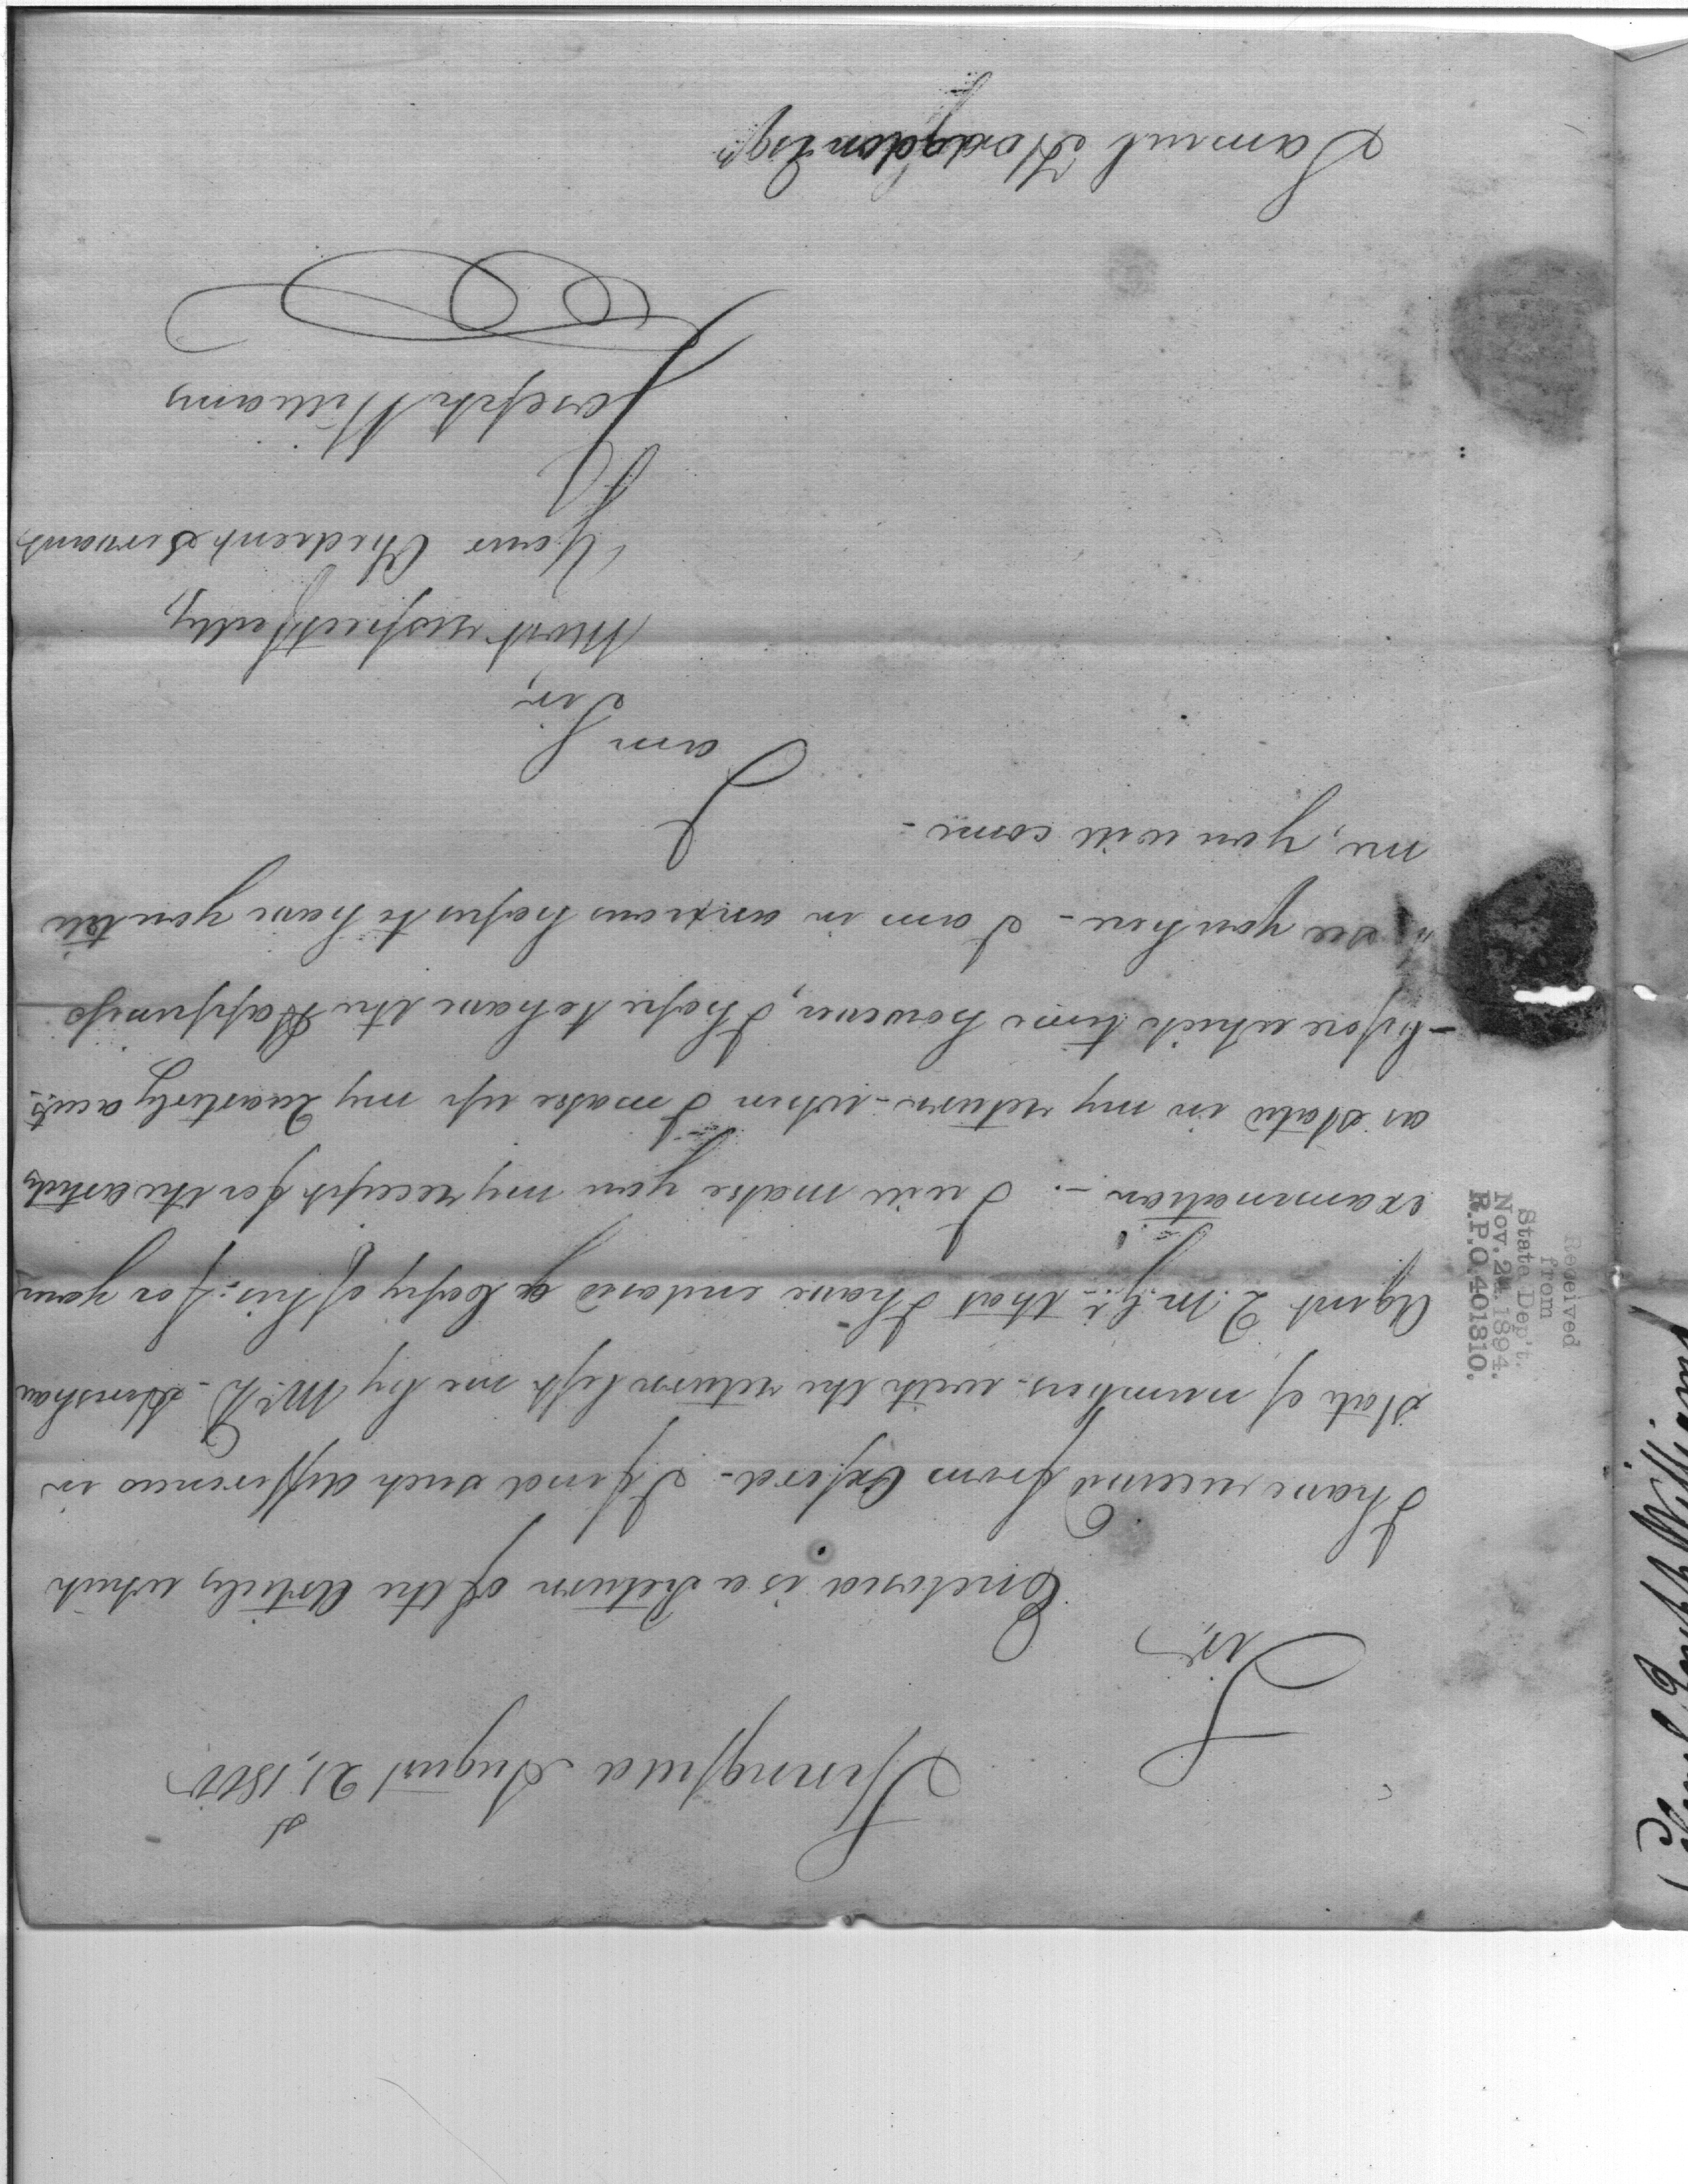 Springfield August 21st, 1800
Sir,
Enclosed is a Return of the Articles which
I have received from Oxford - I find such differences in
state of numbers with the return left me by Mr. D. Henshaw
Agent Q. M. G. that I have enclosed a Copy of his: for your
examination - I will make you my receipt for the articles
as stated in my return - when I make up my Quarterly accts.
- before which time however, I hope to have the Happiness
see you here - I am in anxious hopes to have you tell
me, you will come -
I am
Sir,
Most respectfully,
Your Obedient Servant
Joseph Williams
Samuel Hodgdon Esqr.
Received
from
State Dep't.
Nov. 24 1894.
R.P.O. 401310.
Joseph Williams